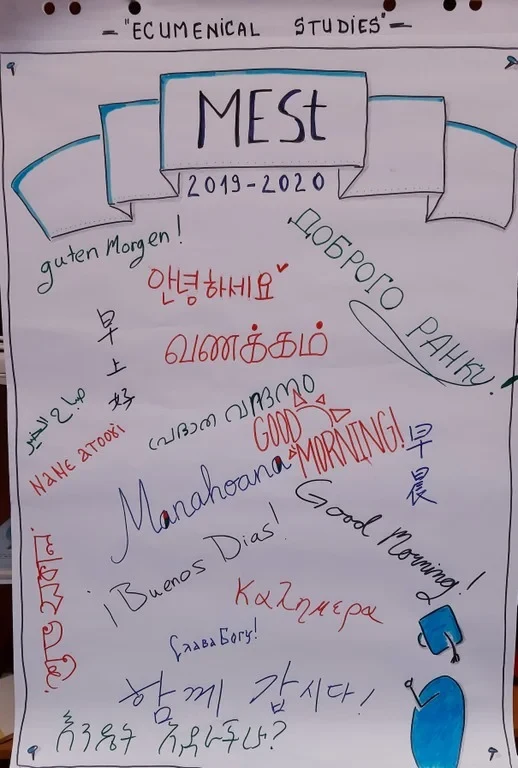 - "ECUMENICAL STUDIES" -
MESt
2019-2020
guten Morgen!
ДОБРОГО РАНКУ.
안녕하세요
早上好
வணக்கம்
صباح الخير
NaNe aтooki
GOOD MORNING!
早晨
Manahoana
Good Morning!
¡Buenos Dias!
Καλημερα
Слава Богу!
함께 갑시다!